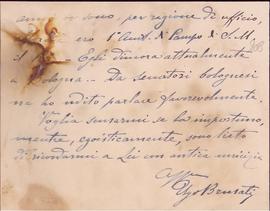 amico sono, per ragione di ufficio,
ero 1º Aiut. di Campo di S. M.
il Egli dimora attualmente
a Bologna... Da senatori bolognesi
ne ho udito parlare favorevolmente.
Voglia scusarmi se la importuno,
mentre, egoisticamente, sono lieto
di ricordarmi a Lei con antica amicizia
Aff
Ugo Brusati